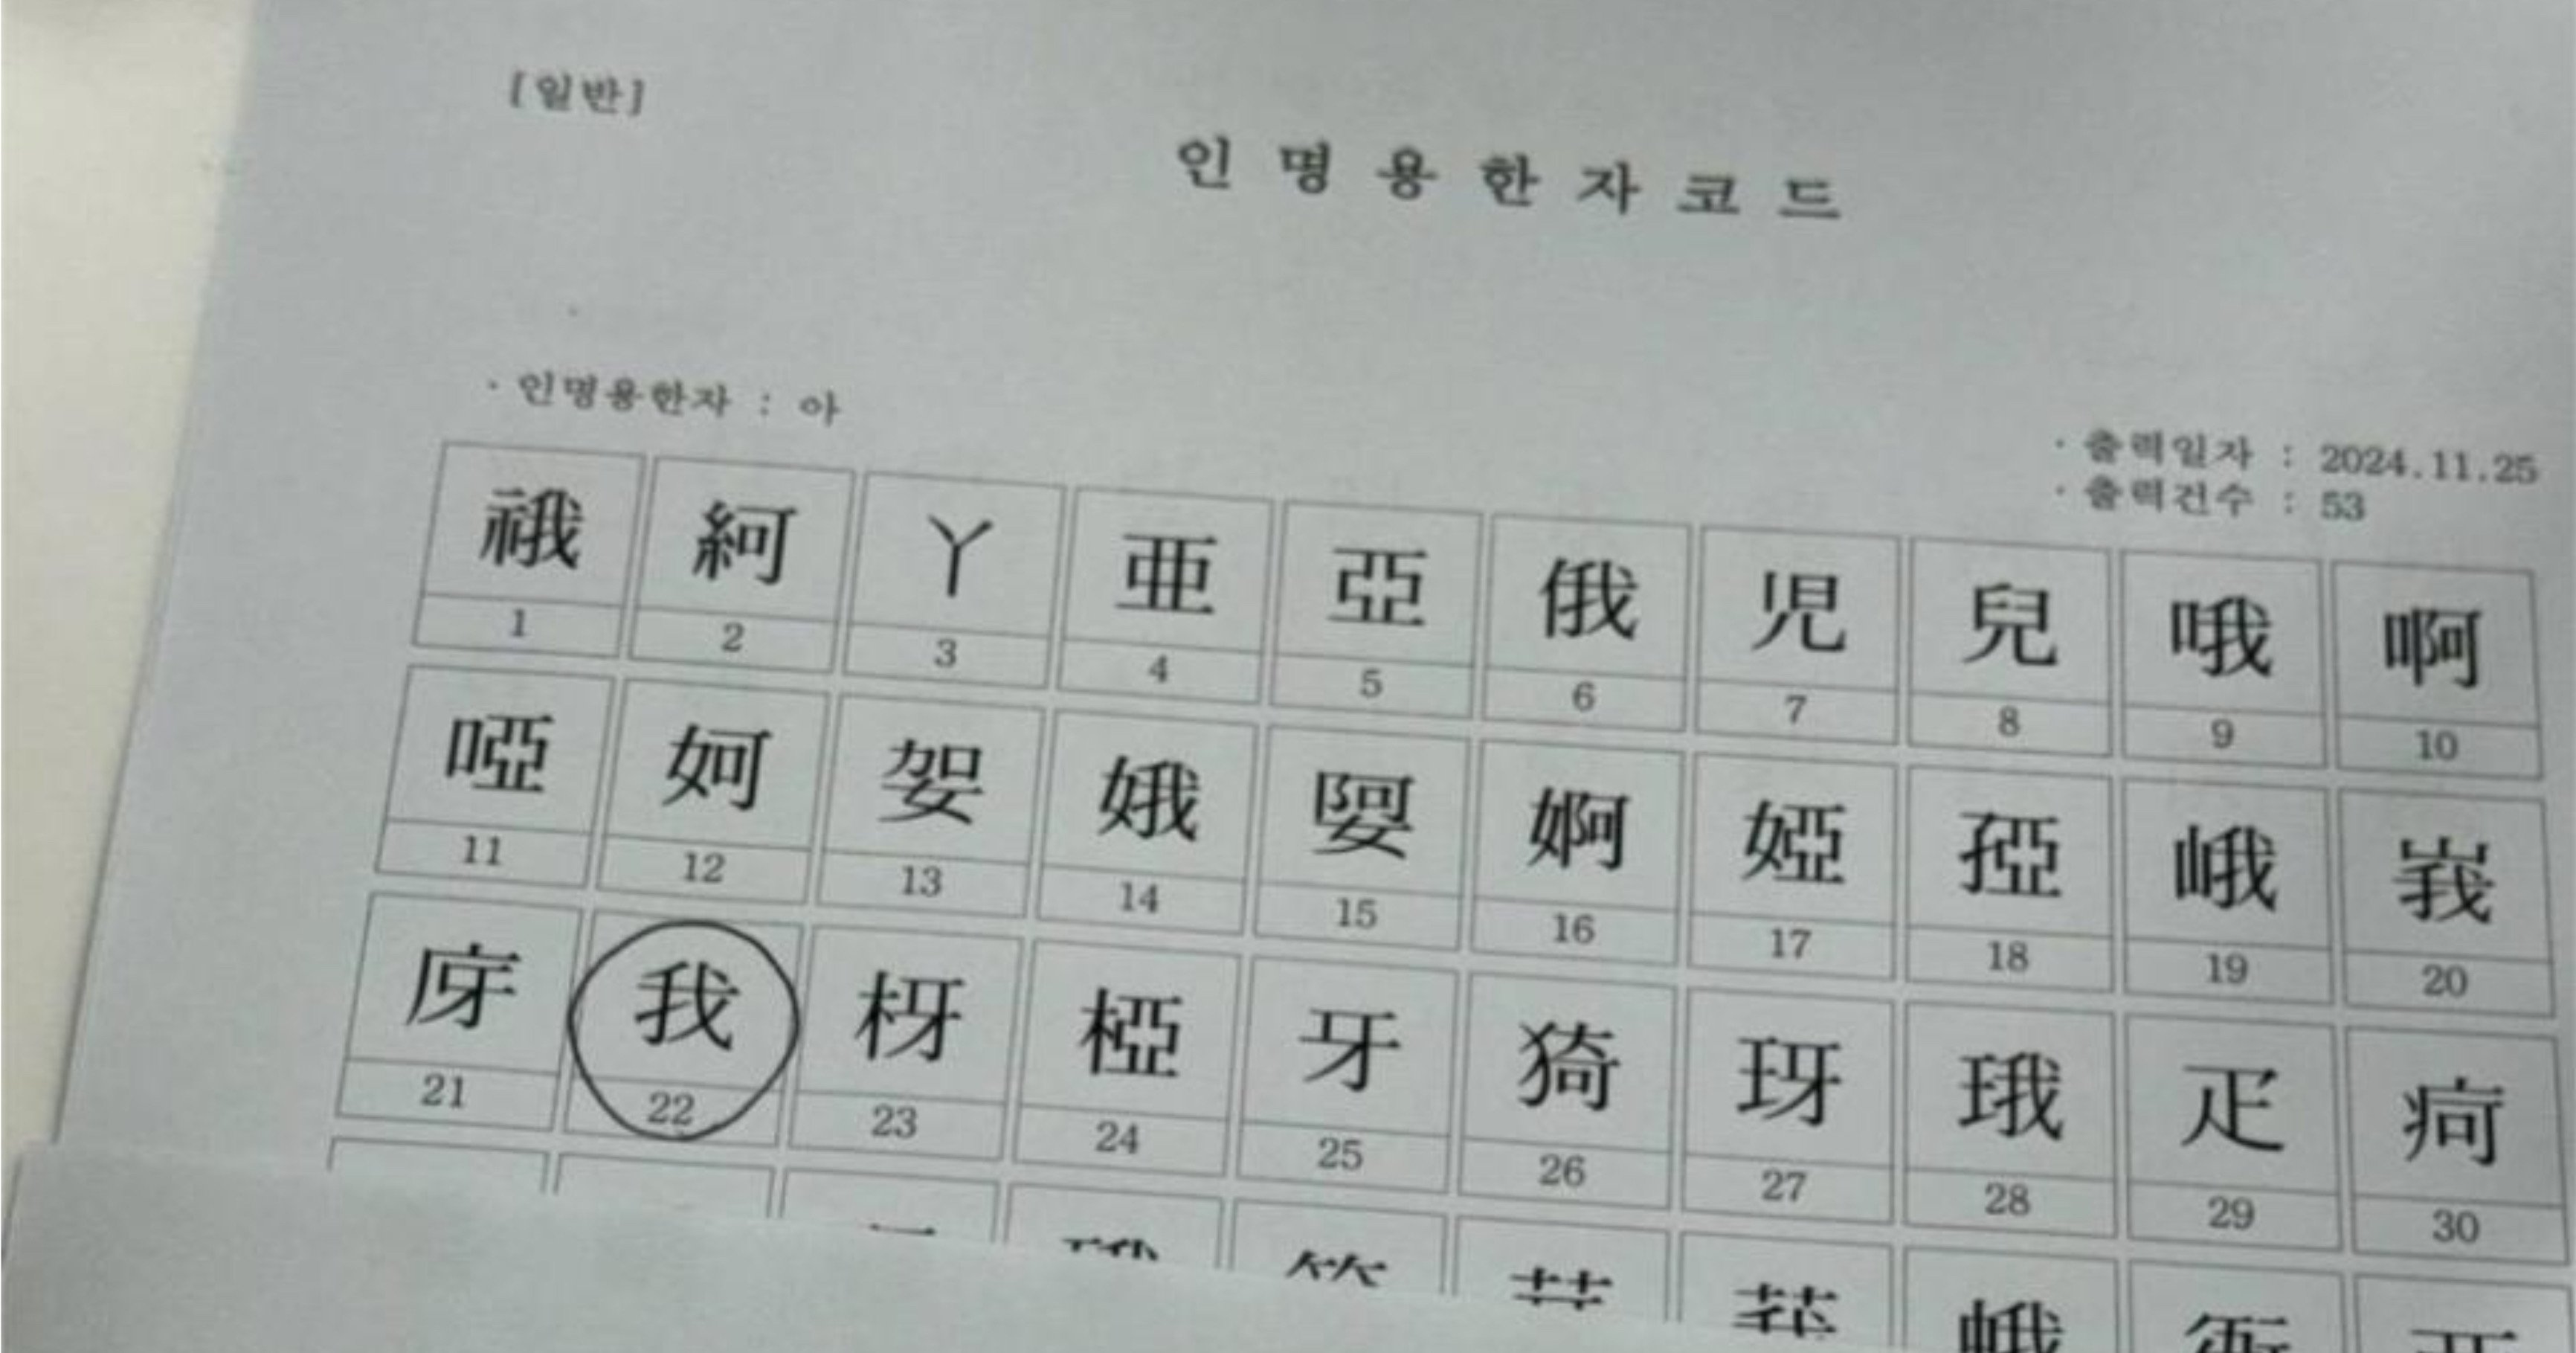 [일반]
인명용한자코드
· 인명용한자 : 아
· 출력일자 : 2024.11.25
· 출력건수 : 53
祪 紏 丫 亜 亞 俄 児 兒 哦 啊
1 2 3 4 5 6 7 8 9 10
啞 妸 娿 娥 婴 婀 婭 孲 峨 峩
11 12 13 14 15 16 17 18 19 20
庌 我 枒 椏 牙 猗 玡 珴 疋 疴
21 22 23 24 25 26 27 28 29 30